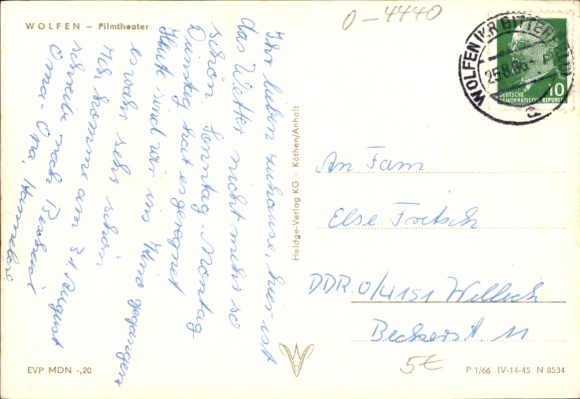 WOLFEN – Filmtheater
O-4440
WOLFEN (KR BITTERFELD)
25.8.66
a
10
DEUTSCHE
DEMOKRATISCHE REPUBLIK
Ihr lieben zuhause, hier ist
das Wetter nicht mehr so
schön. Sonntag Montag
Dienstag hat es geregnet
Heute sind wir im Kino gegangen
es war sehr schön
Wir kommen am 31 August
schreibe nach
Oma - Opa, Hannelore
Heldge-Verlag KG · Köthen/Anhalt
An Fam
Else Fritsch
DDR.O/4151 Willich
Beckerst. 11
5€
EVP MDN -,20
P 1/66 IV-14-45 N 8534